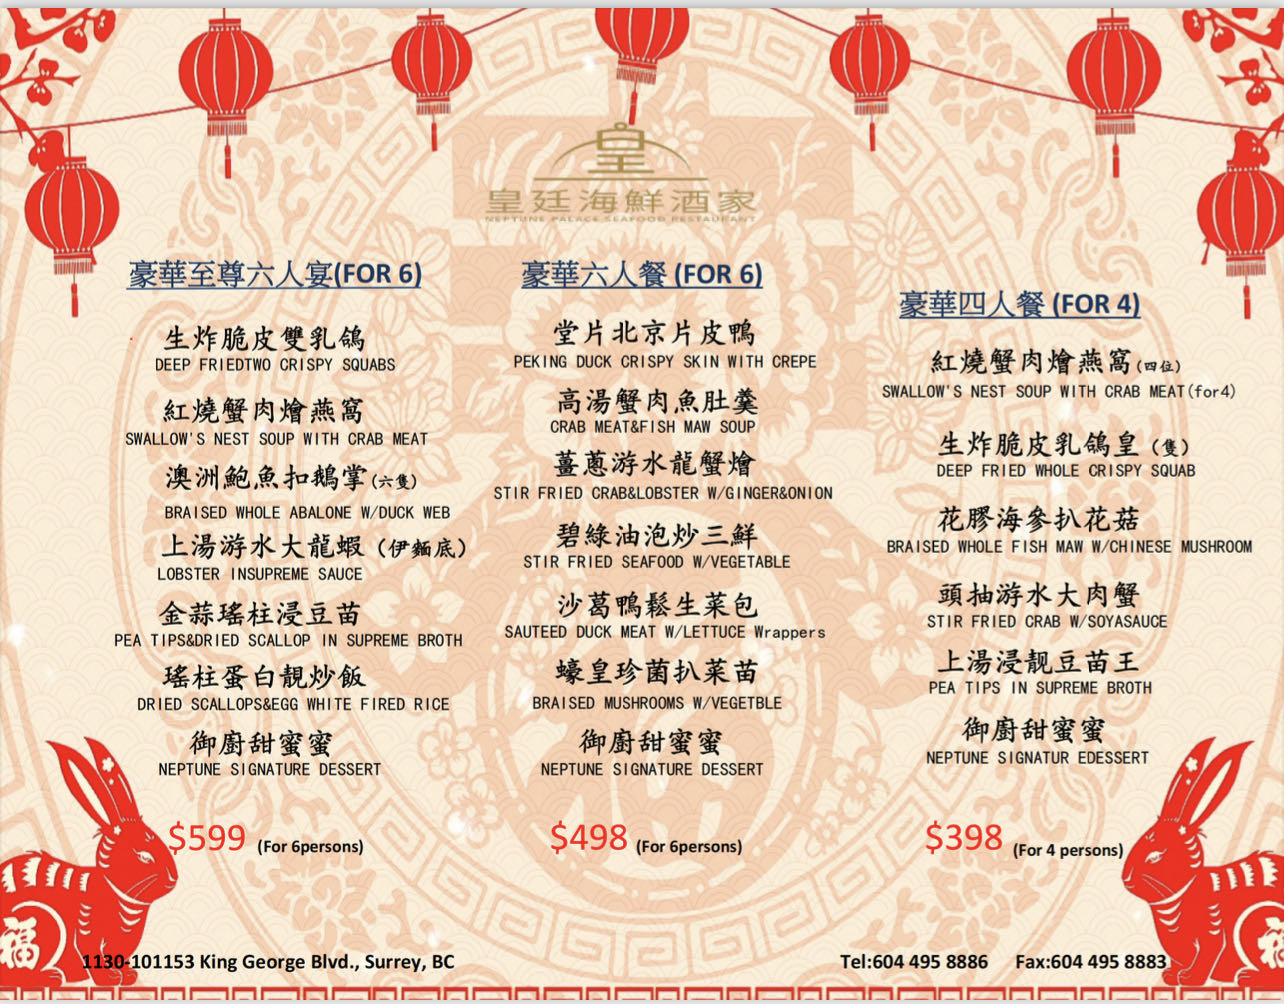 皇
皇廷海鮮酒家
NEPTUNE PALACE SEAFOOD RESTAURANT
豪華至尊六人宴(FOR 6)
生炸脆皮雙乳鴿
DEEP FRIEDTWO CRISPY SQUABS
紅燒蟹肉燴燕窩
SWALLOW'S NEST SOUP WITH CRAB MEAT
澳洲鮑魚扣鵝掌(六隻)
BRAISED WHOLE ABALONE W/DUCK WEB
上湯游水大龍蝦 (伊麵底)
LOBSTER INSUPREME SAUCE
金蒜瑤柱浸豆苗
PEA TIPS&DRIED SCALLOP IN SUPREME BROTH
瑤柱蛋白靚炒飯
DRIED SCALLOPS&EGG WHITE FIRED RICE
御廚甜蜜蜜
NEPTUNE SIGNATURE DESSERT
$599 (For 6persons)
豪華六人餐 (FOR 6)
堂片北京片皮鴨
PEKING DUCK CRISPY SKIN WITH CREPE
高湯蟹肉魚肚羹
CRAB MEAT&FISH MAW SOUP
薑蔥游水龍蟹燴
STIR FRIED CRAB&LOBSTER W/GINGER&ONION
碧綠油泡炒三鮮
STIR FRIED SEAFOOD W/VEGETABLE
沙葛鴨鬆生菜包
SAUTEED DUCK MEAT W/LETTUCE Wrappers
蠔皇珍菌扒菜苗
BRAISED MUSHROOMS W/VEGETBLE
御廚甜蜜蜜
NEPTUNE SIGNATURE DESSERT
$498 (For 6persons)
豪華四人餐 (FOR 4)
紅燒蟹肉燴燕窩(四位)
SWALLOW'S NEST SOUP WITH CRAB MEAT(for4)
生炸脆皮乳鴿皇 (隻)
DEEP FRIED WHOLE CRISPY SQUAB
花膠海參扒花菇
BRAISED WHOLE FISH MAW W/CHINESE MUSHROOM
頭抽游水大肉蟹
STIR FRIED CRAB W/SOYASAUCE
上湯浸靚豆苗王
PEA TIPS IN SUPREME BROTH
御廚甜蜜蜜
NEPTUNE SIGNATUR EDESSERT
$398 (For 4 persons)
福
福
1130-101153 King George Blvd., Surrey, BC
Tel:604 495 8886 Fax:604 495 8883